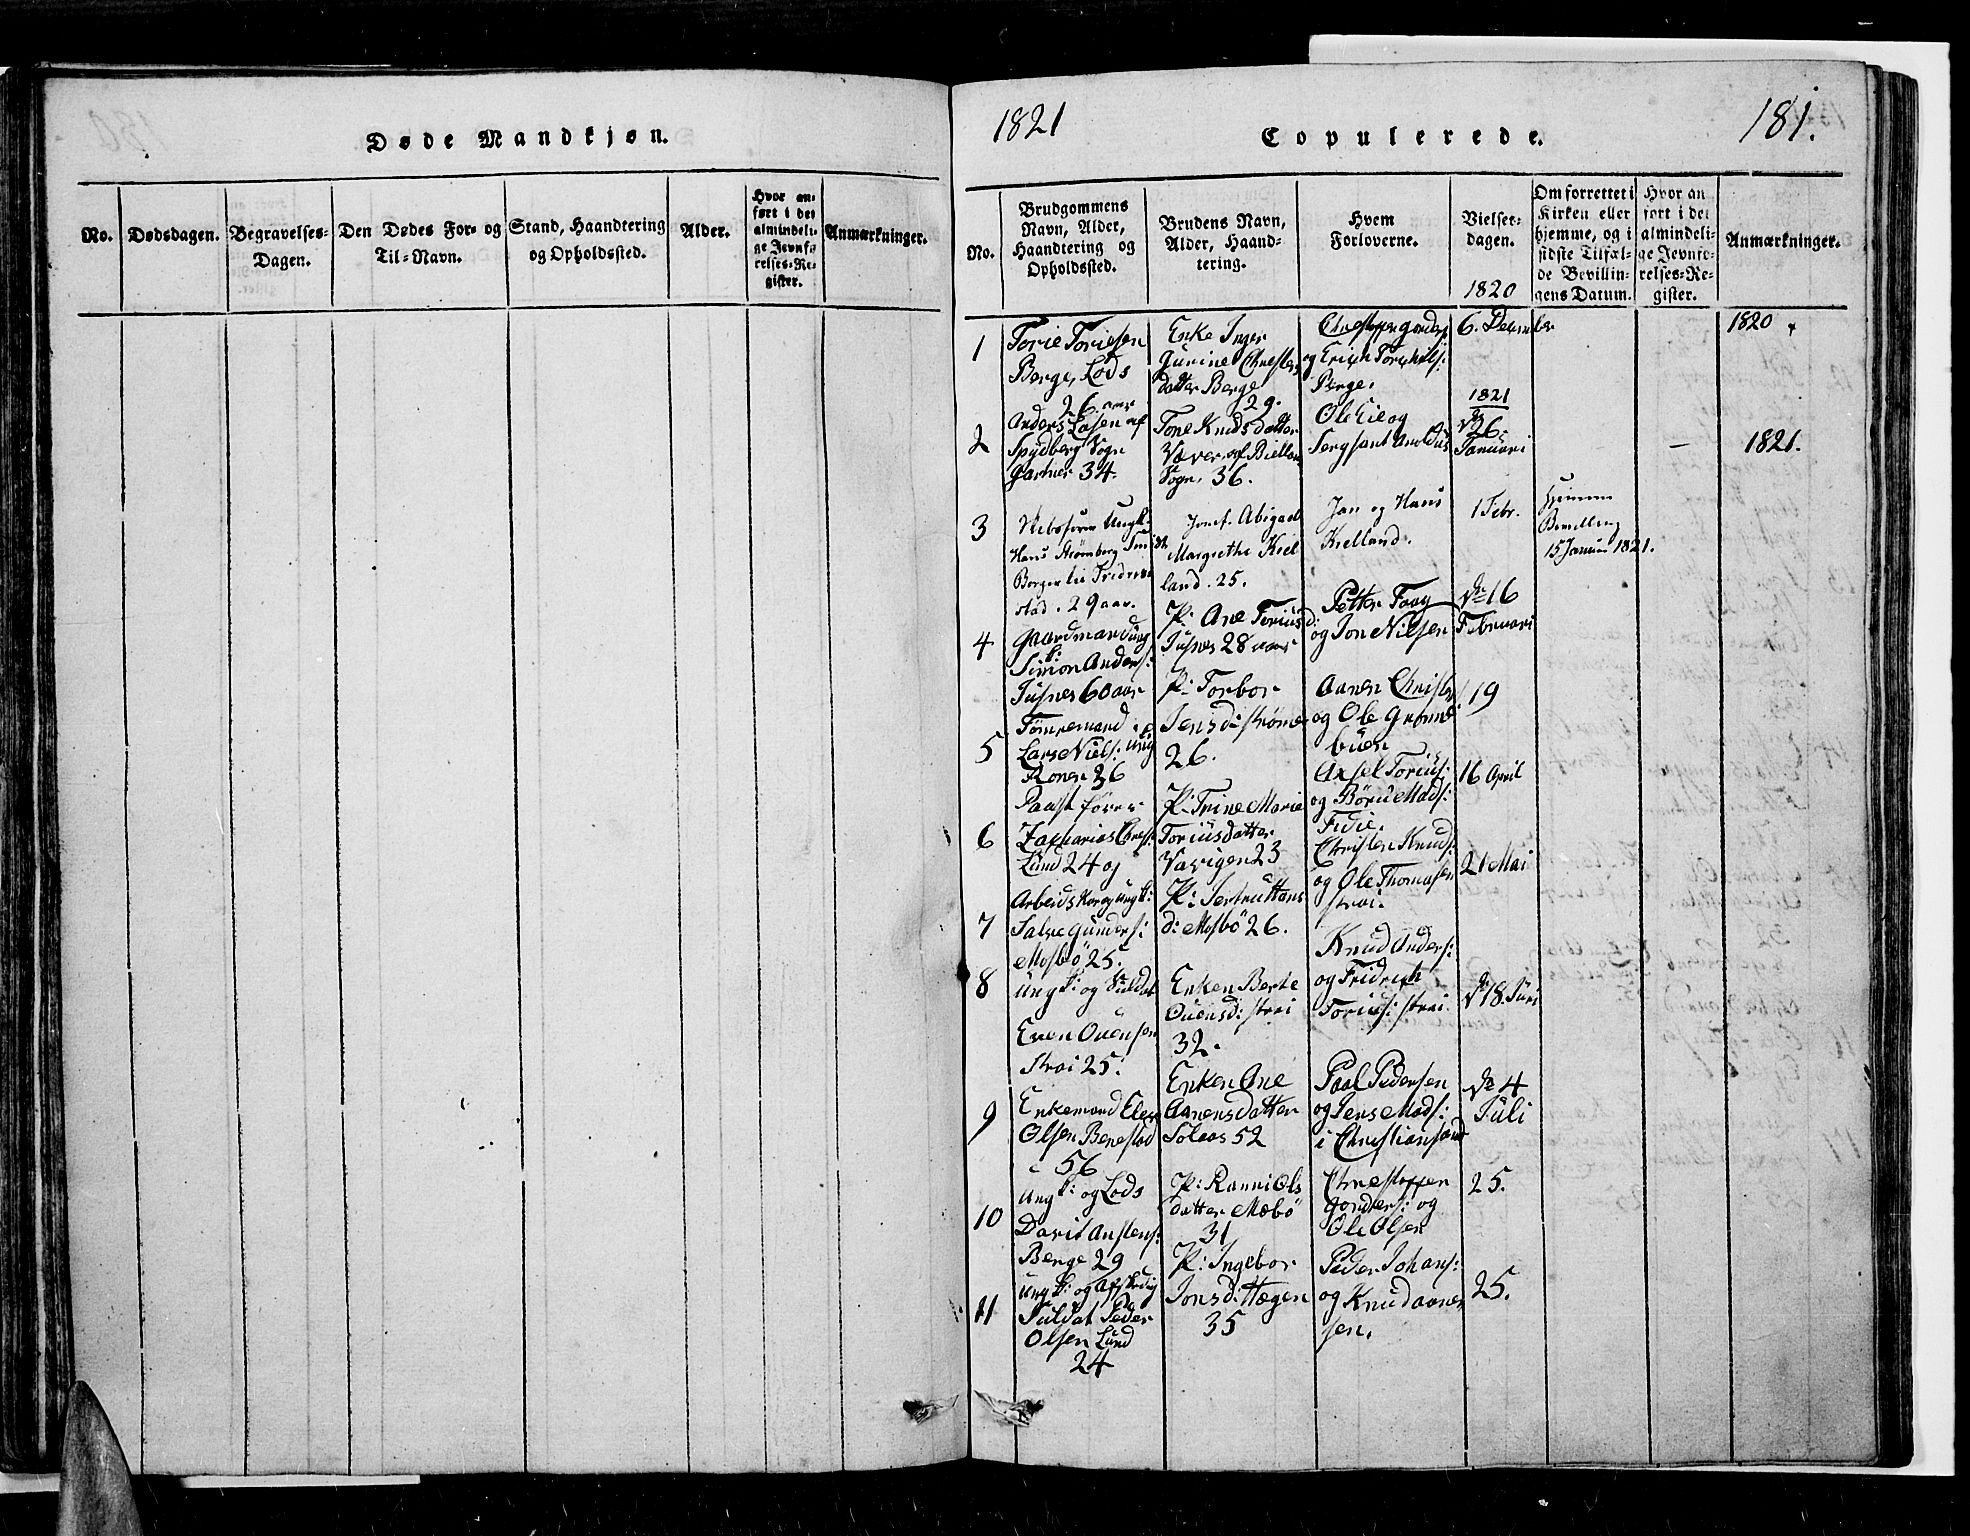 Døde Mandkjøn.
No.
Dødsdagen.
Begravelses-
Dagen.
Den Dødes For- og
Til-Navn.
Stand, Haandtering
og Opholdssted.
Alder.
Hvor an-
ført i det
almindeli-
ge Jevnfø-
relses-Re-
gister.
Anmærkninger.
1821
Copulerede.
181.
No.
Brudgommens
Navn, Alder,
Haandtering og
Opholdssted.
Brudens Navn,
Alder, Haand-
tering.
Hvem
Forloverne.
Vielses-
dagen.
1820
Om forrettet i
Kirken eller
hjemme, og i
sidste Tilfæl-
de Bevillin-
gens Datum.
Hvor an
ført i det
almindeli-
ge Jevnfø-
relses-Re-
gister.
Anmærkninger.
1
Torie Toriesen
Berge, Lods
26 aar
Enke Inger
Gurine Christens
datter Berge
29.
og Erich
Berge.
6. December
1820
2
Anders Lasen af
Spydberg Sogn
Gartner 34.
Tone Knudsdatter
Væver af Bielland
Sogn. 36.
Ole Eie og
Sergsant
1821
26.
Januari
1821.
3
Ungk:
Hans Strømberg
Borger til Fridrics
stad. 29 aar.
Jomf. Abigael
Margrethe Kiel
land. 25.
Jan og Hans
Kielland.
1 Febr.
Hjemme
Bevilling
15 Januari 1821.
4
Gaardmand ung
k:
Simon Anders:
Tusnes 60 aar
P: Ane Toriüsd:
Tusnes 28 aar
Petter Faay
og Jon Nilsen
16
Februari
5
Tømremand
Lars Niels: ung
Ronen 26
P: Torbor
Jensd: Strømes
26.
Aanen Christens
og Ole Grønne
buen
19
6
Zacharias Chrest:
Lund 24 og
P: Trine Marie
Toriüsdatter
Vavigen 23
Axsel Toriüs:
og Børu Mads:
Fidie.
16 April
7
Arbeidskar og ungk:
Salve Gunders:
Mosbö 25.
P: Hans
d: Mosbö 26.
Christen Knuds:
og Ole Thomasen
Strai.
21 Mai
8
Ungk: og Suldat
Even Ouensen
Strai 25.
Enken Berte
Ouensd: Strai
32.
Knud Anders:
og Fridrich
Toriüs: Strai.
18.
9
Enkemand
Olsen Benestad
56
Enken Ane
Aanensdatter
Solaas 52
Paal Pedersen
og Jens Mads:
i Christiansand
4
Juli
10
Ungk: og Lods
David Anstens:
Berge 29
P: Ranni Ols
datter Mæbö
31
Christoffer
Gonders: og
Ole Olsen
25.
11
Ungk: og
Suldat Peder
Olsen Lund
24
P: Ingebor
Jonsd: Hægen
35
Peder Johans:
og Knud Aanen
sen.
25.